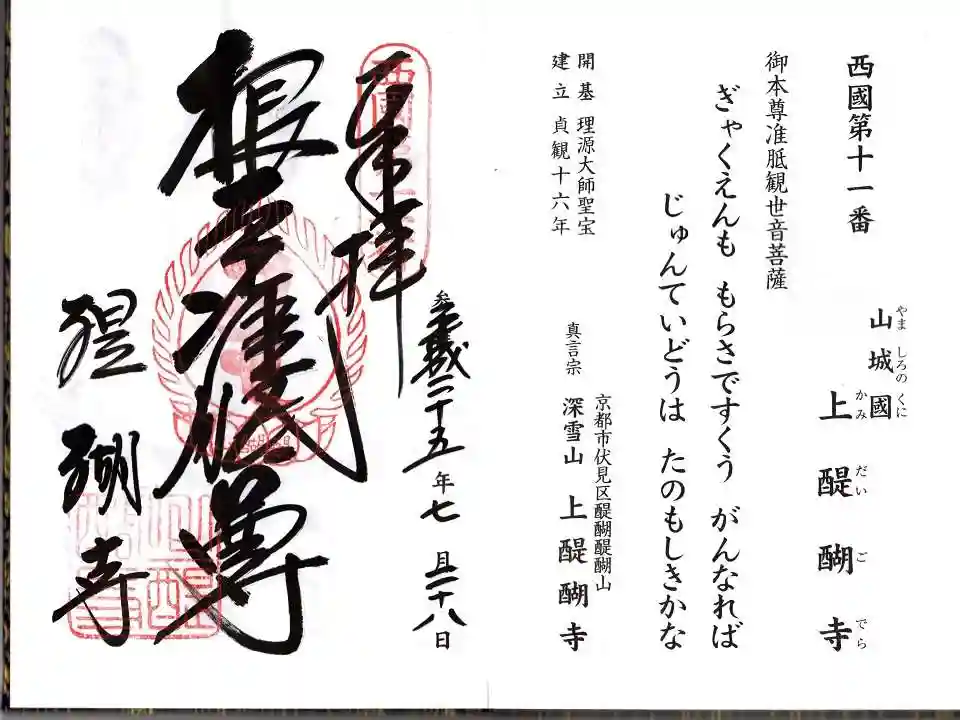 西國第十一番
やま しろの くに
山城國
かみ だい ご でら
上醍醐寺
御本尊准胝観世音菩薩
ぎゃくえんも もらさですくう がんなれば
じゅんていどうは たのもしきかな
開基 理源大師聖宝
建立 貞観十六年
京都市伏見区醍醐醍醐山
真言宗 深雪山 上醍醐寺
奉拝
平成二十五年七月二十八日
根本准胝尊
醍醐寺